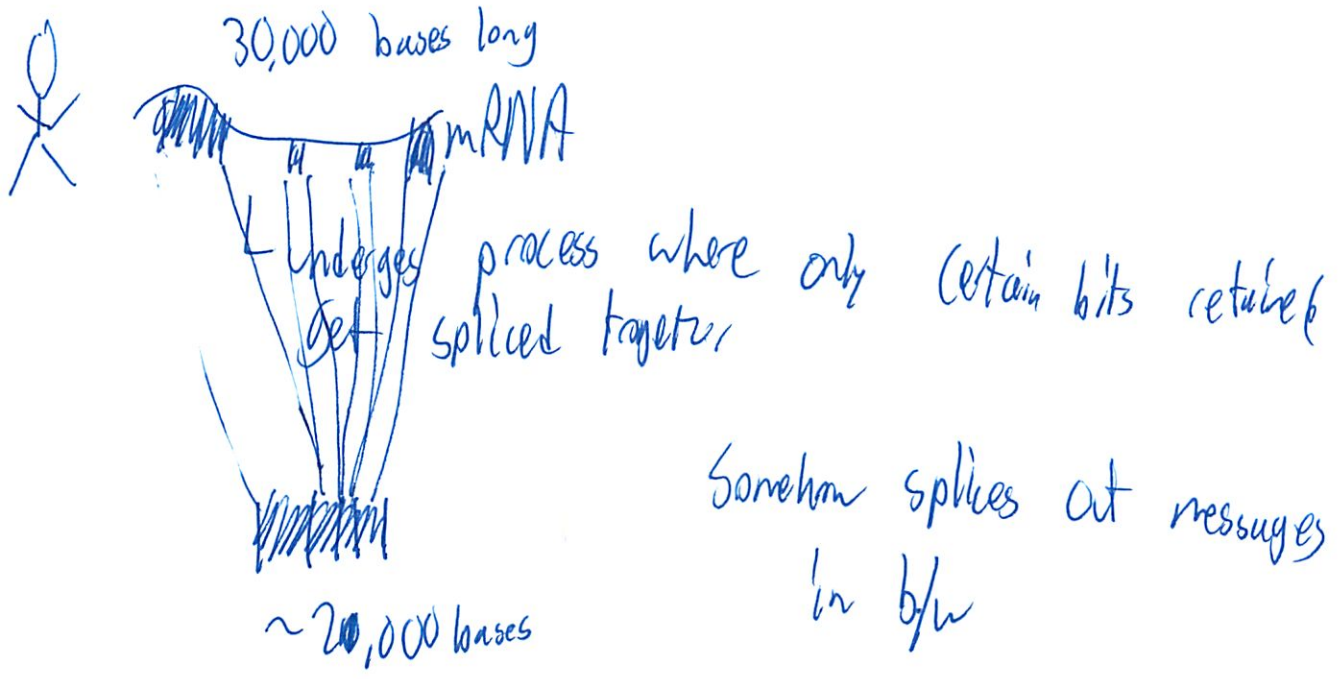 30,000 bases long
mRNA
Undergoes process where only certain bits retained
Get spliced together
Somehow splices out messages
in b/w
~ 20,000 bases